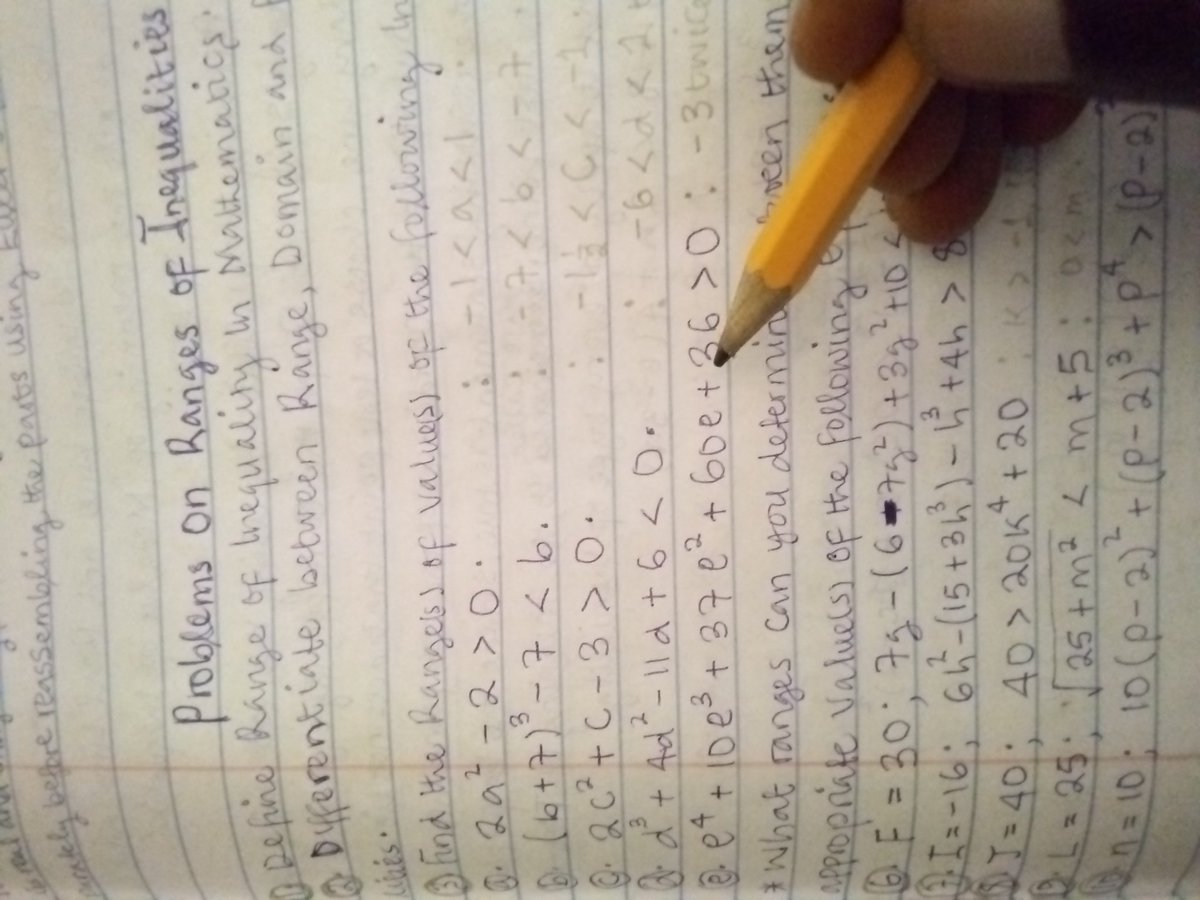 rately before reassembling the parts using Euler
Problems on Ranges of Inequalities
① Define Range of Inequality In Mathematics.
② Differentiate between Range, Domain and
lities.
③ Find the Range(s) of value(s) of the following In
ⓐ. 2a² - 2 > 0. : -1 < a < 1.
ⓑ. (b + 7)³ - 7 < b. : -7 < b < -7
ⓒ. 2c² + c - 3 > 0. : -1½ < C < -1.
ⓓ. d³ + 4d² - 11d + 6 < 0. : -6 < d < 1
ⓔ. e⁴ + 10e³ + 37e² + 60e + 36 > 0 : -3 twice
* What ranges can you determin between them
appropriate value(s) of the following
⑥. F = 30; 7g - (6 7g²) + 3g² + 10 <
⑦. I = -16; 6h² - (15 + 3h³) - h³ + 4h > 8
⑧. J = 40; 40 > 20k⁴ + 20 : k > -1
⑨. L = 25; √25 + m² < m + 5 : 0 < m.
⑩. n = 10; 10(p - 2)² + (p - 2)³ + p⁴ > (p - 2)